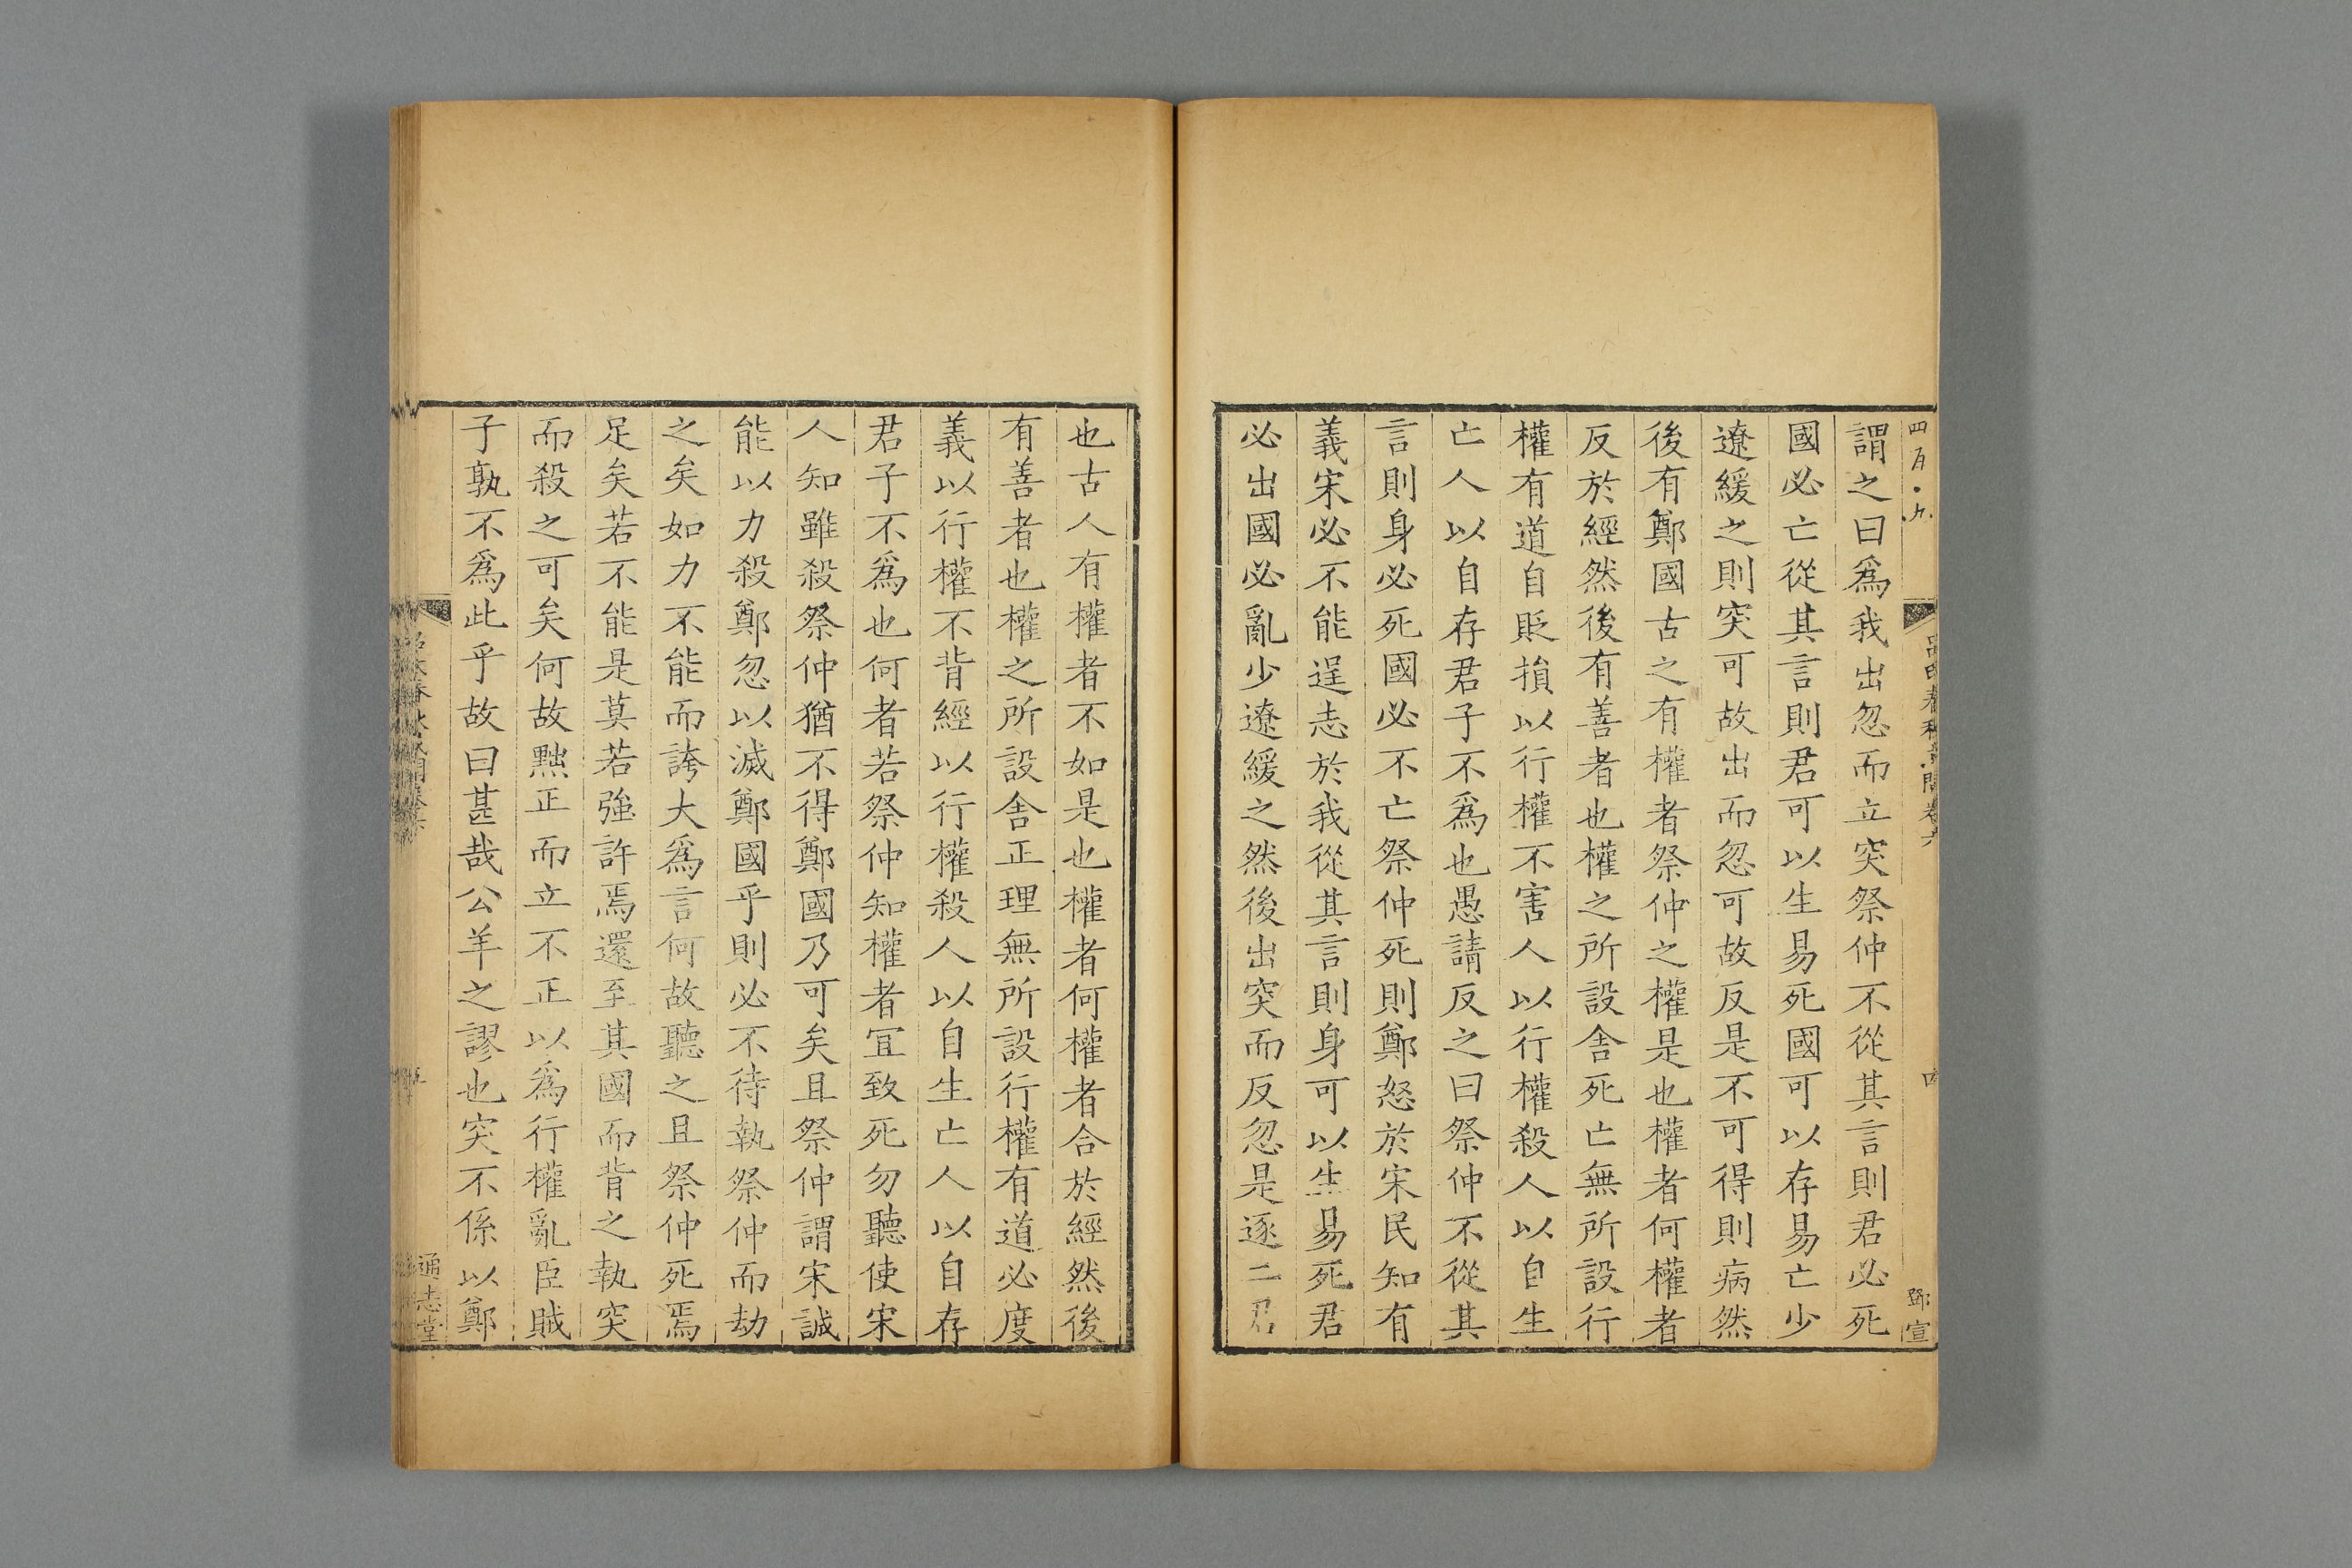 謂之曰爲我出忽而立突祭仲不從其言則君必死
國必亡從其言則君可以生易死國可以存易亡少
遼緩之則突可故出而忽可故反是不可得則病然
後有鄭國古之有權者祭仲之權是也權者何權者
反於經然後有善者也權之所設舍死亡無所設行
權有道自貶損以行權不害人以行權殺人以自生
亡人以自存君子不爲也愚請反之曰祭仲不從其
言則身必死國必不亡祭仲死則鄭怒於宋民知有
義宋必不能逞志於我從其言則身可以生易死君
必出國必亂少遼緩之然後出突而反忽是逐二君
鄧宣
也古人有權者不如是也權者何權者合於經然後
有善者也權之所設舍正理無所設行權有道必度
義以行權不背經以行權殺人以自生亡人以自存
君子不爲也何者若祭仲知權者宜致死勿聽使宋
人知雖殺祭仲猶不得鄭國乃可矣且祭仲謂宋誠
能以力殺鄭忽以滅鄭國乎則必不待執祭仲而劫
之矣如力不能而誇大爲言何故聽之且祭仲死焉
足矣若不能是莫若強許焉還至其國而背之執突
而殺之可矣何故黜正而立不正以爲行權亂臣賊
子孰不爲此乎故曰甚哉公羊之謬也突不係以鄭
通志堂